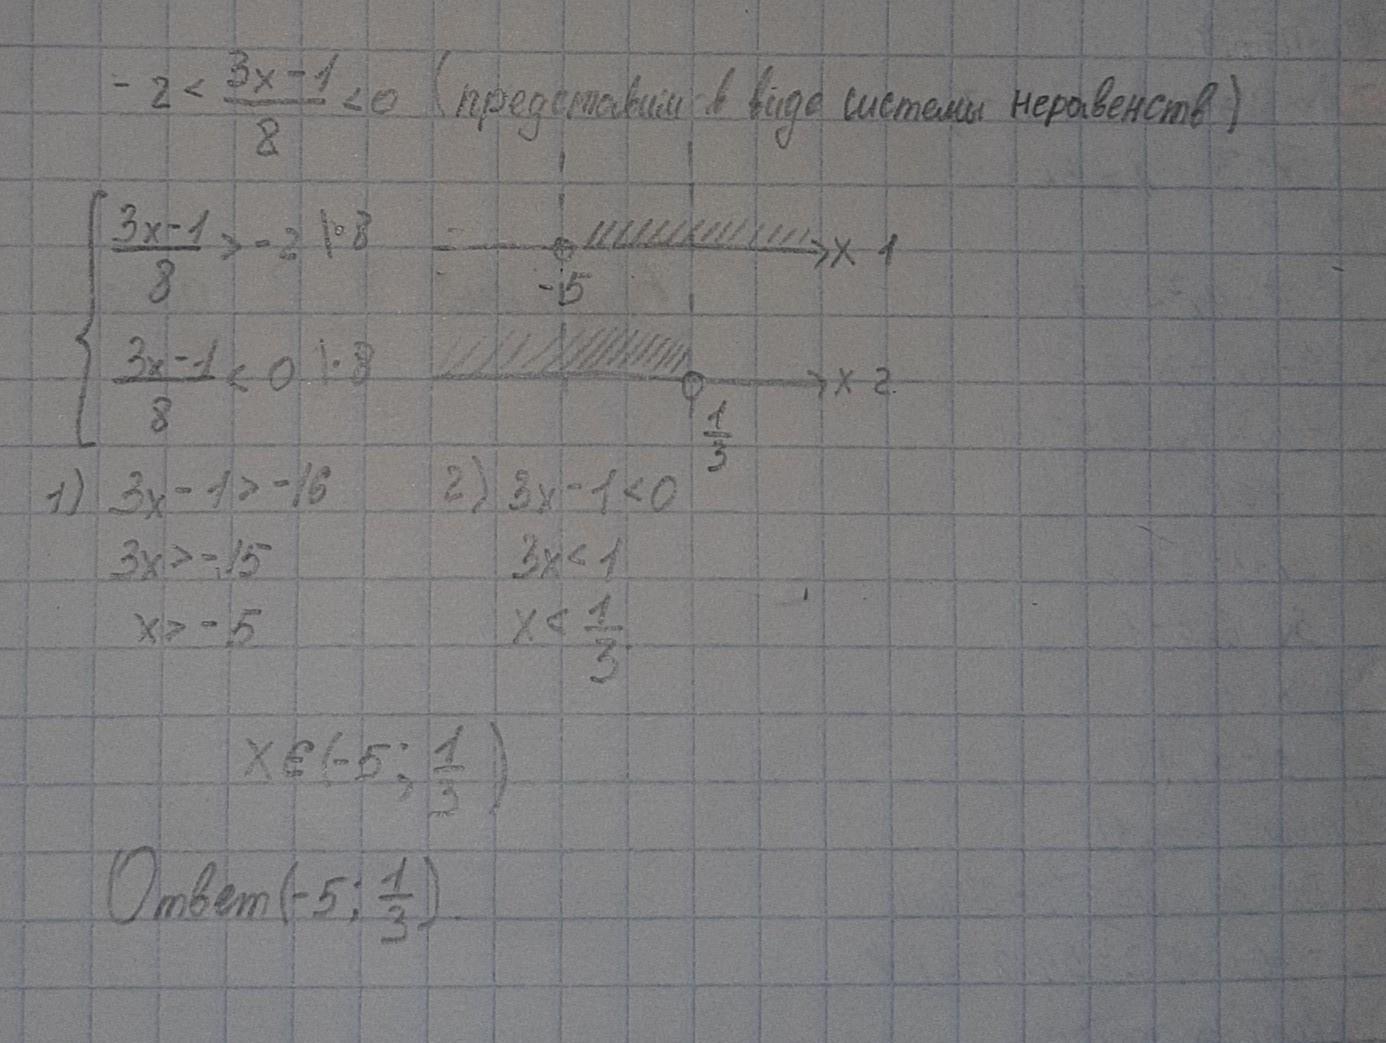 -2 < (3x-1)/8 < 0 (представим в виде системы неравенств)
{ (3x-1)/8 > -2 |·8
-5 x 1
(3x-1)/8 < 0 |·8
1/3 x 2
1) 3x-1>-16 2) 3x-1<0
3x>-15 3x<1
x>-5 x<1/3
x∈(-5; 1/3)
Ответ(-5; 1/3).